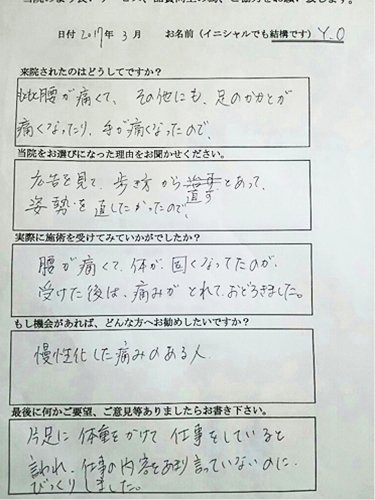 日付 2017年 3月 お名前（イニシャルでも結構です）Y.O
来院されたのはどうしてですか？
腰が痛くて、その他にも、足のかかとが
痛くなったり、手が痛くなったので、
当院をお選びになった理由をお聞かせください。
広告を見て、歩き方から治す とあって、
直す
姿勢を直したかったので、
実際に施術を受けてみていかがでしたか？
腰が痛くて、体が固くなってたのが、
受けた後は、痛みがとれて、おどろきました。
もし機会があれば、どんな方へお勧めしたいですか？
慢性化した痛みのある人
最後に何かご要望、ご意見等ありましたらお書き下さい。
片足に体重をかけて仕事をしていると
言われ、仕事の内容をあまり言っていないのに
びっくりしました。